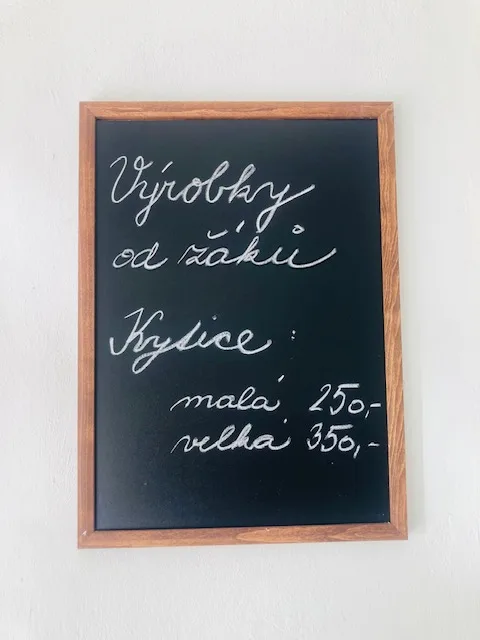 Výrobky
od žáků
Kytice :
malá 250,-
velká 350,-